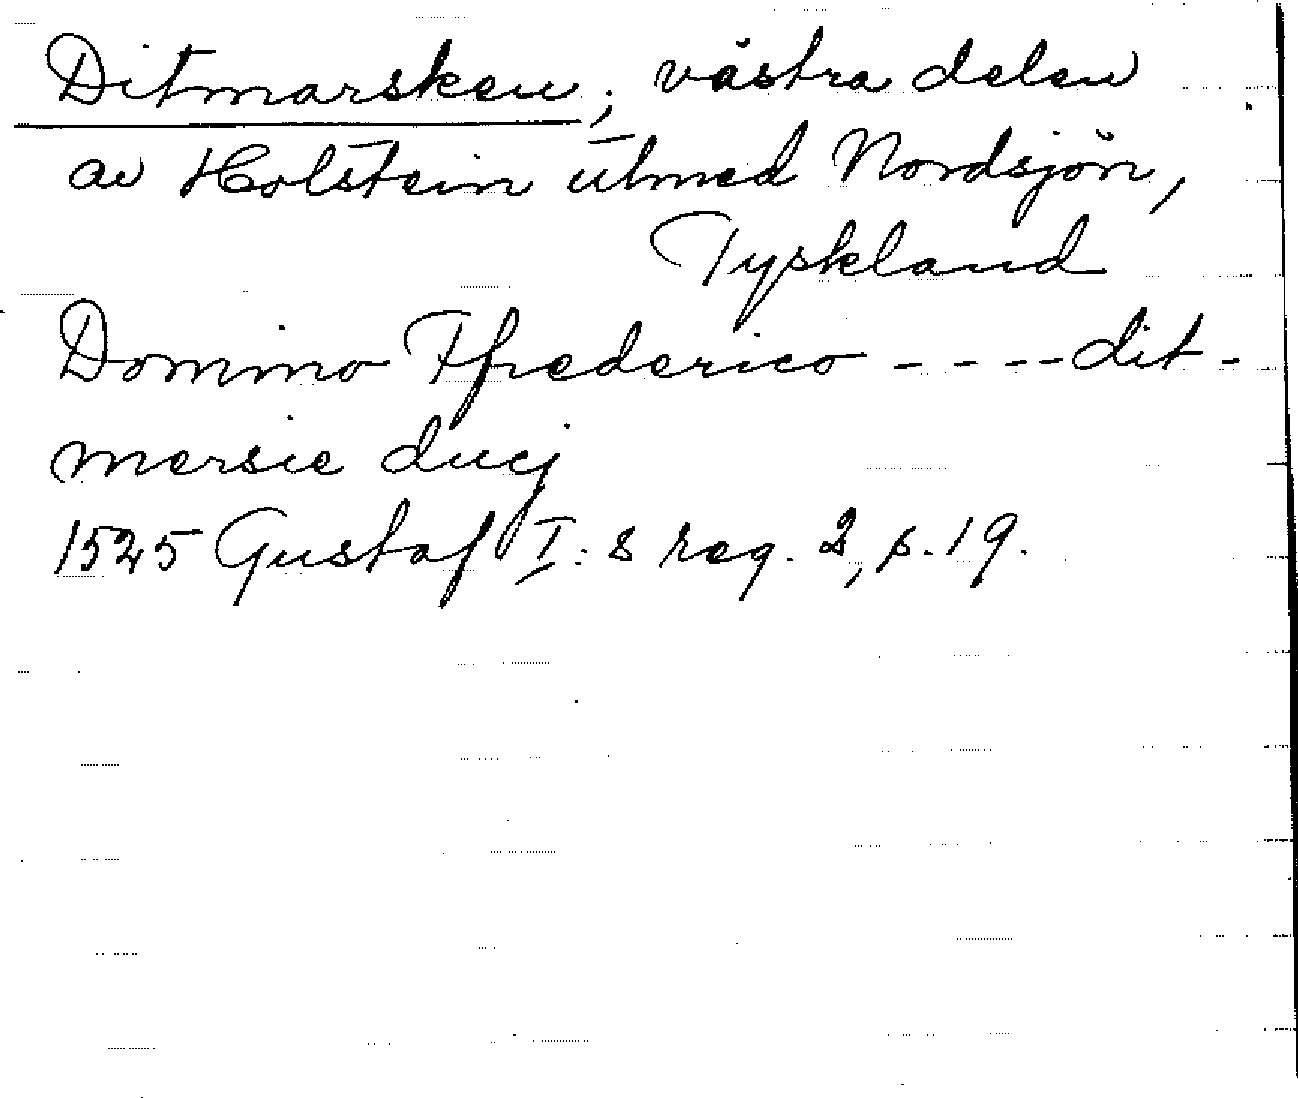 Ditmarsken; västra delen
av Holstein utmed Nordsjön,
Tyskland
Domino Ffrederico ---- dit-
mersie ducj
1525 Gustaf I:s reg. 2, s. 19.